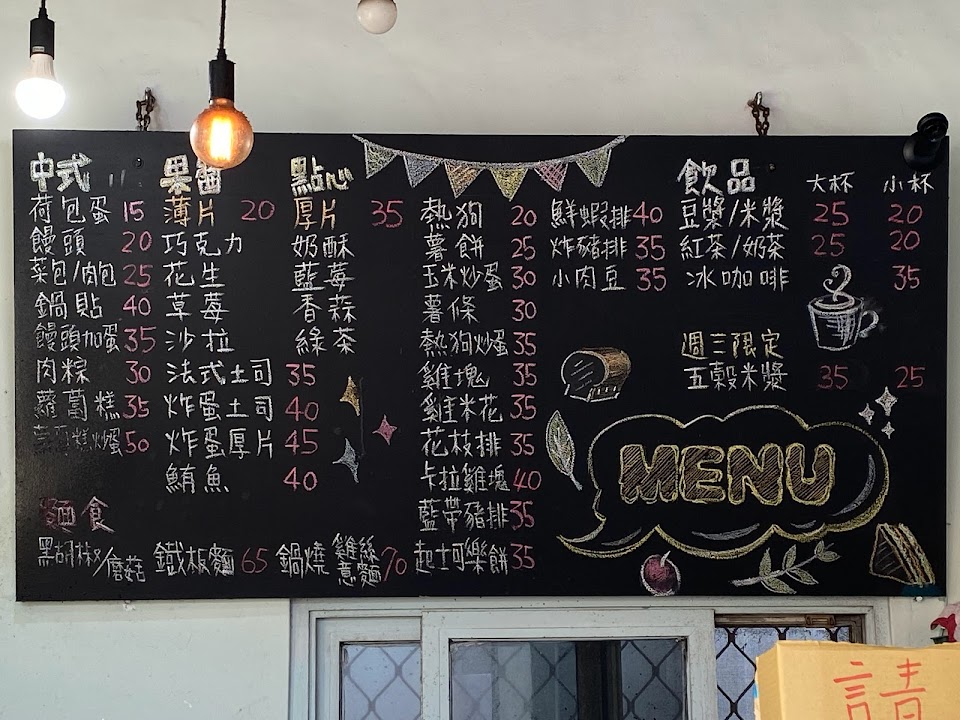 中式
荷包蛋 15
饅頭 20
菜包/肉包 25
鍋貼 40
饅頭加蛋 35
肉粽 30
蘿蔔糕 35
蘿蔔糕炒蛋 50
麵食
黑胡椒/蘑菇 鐵板麵 65 鍋燒雞絲意麵 70
果醬
薄片 20
巧克力
花生
草莓
沙拉
法式土司 35
炸蛋土司 40
炸蛋厚片 45
鮪魚 40
點心
厚片 35
奶酥
藍莓
香蒜
綠茶
熱狗 20
薯餅 25
玉米炒蛋 30
薯條 30
熱狗炒蛋 35
雞塊 35
雞米花 35
花枝排 35
卡拉雞塊 40
藍帶豬排 35
起士可樂餅 35
鮮蝦排 40
炸豬排 35
小肉豆 35
飲品 大杯 小杯
豆漿/米漿 25 20
紅茶/奶茶 25 20
冰咖啡 35
週三限定
五穀米漿 35 25
MENU
請